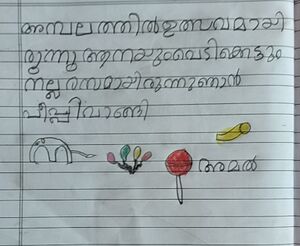 അമ്പലത്തിൽ ഉത്സവമായി
രുന്നു ആനയും വെടിക്കെട്ടും
നല്ല രസമായിരുന്നു ഞാൻ
പീപ്പി വാങ്ങി
അമൽ